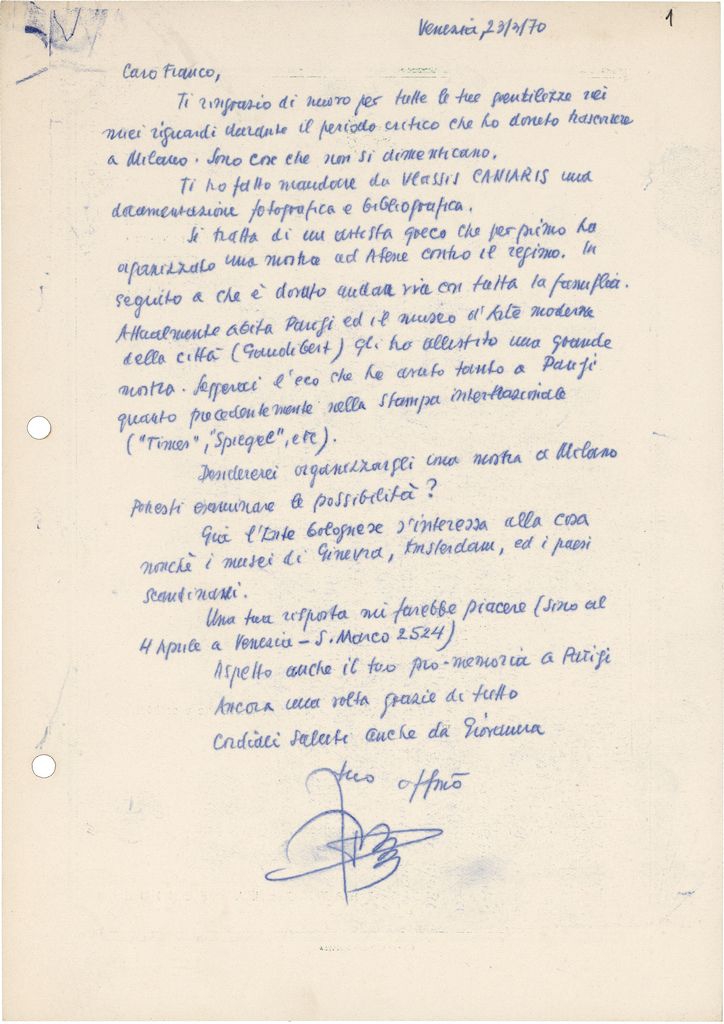 1
Venezia, 23/3/70
Caro Franco,
Ti ringrazio di nuovo per tutte le tue gentilezze nei
miei riguardi durante il periodo critico che ho dovuto trascorrere
a Milano. Sono cose che non si dimenticano.
Ti ho fatto mandare da Vlassis CANIARIS una
documentazione fotografica e bibliografica.
Si tratta di un artista greco che per primo ha
organizzato una mostra ad Atene contro il regimo. In
seguito a che è dovuto andare via con tutta la famiglia.
Attualmente abita Parigi ed il museo d'Arte moderna
della città (Gaudibert) gli ha allestito una grande
mostra. l'eco che ha avuto tanto a Parigi
quanto precedentemente nella stampa internazionale
("Times", "Spiegel", etc).
Desidererei organizzargli una mostra a Milano
Potresti esaminare le possibilità?
Già l'Ente bolognese s'interessa alla cosa
nonchè i musei di Ginevra, Amsterdam, ed i paesi
scandinavi.
Una tua risposta mi farebbe piacere (sino al
4 Aprile a Venezia - S. Marco 2524)
Aspetto anche il tuo pro-memoria a Parigi
Ancora una volta grazie di tutto
Cordiali saluti anche da Giovanna
tuo affmo